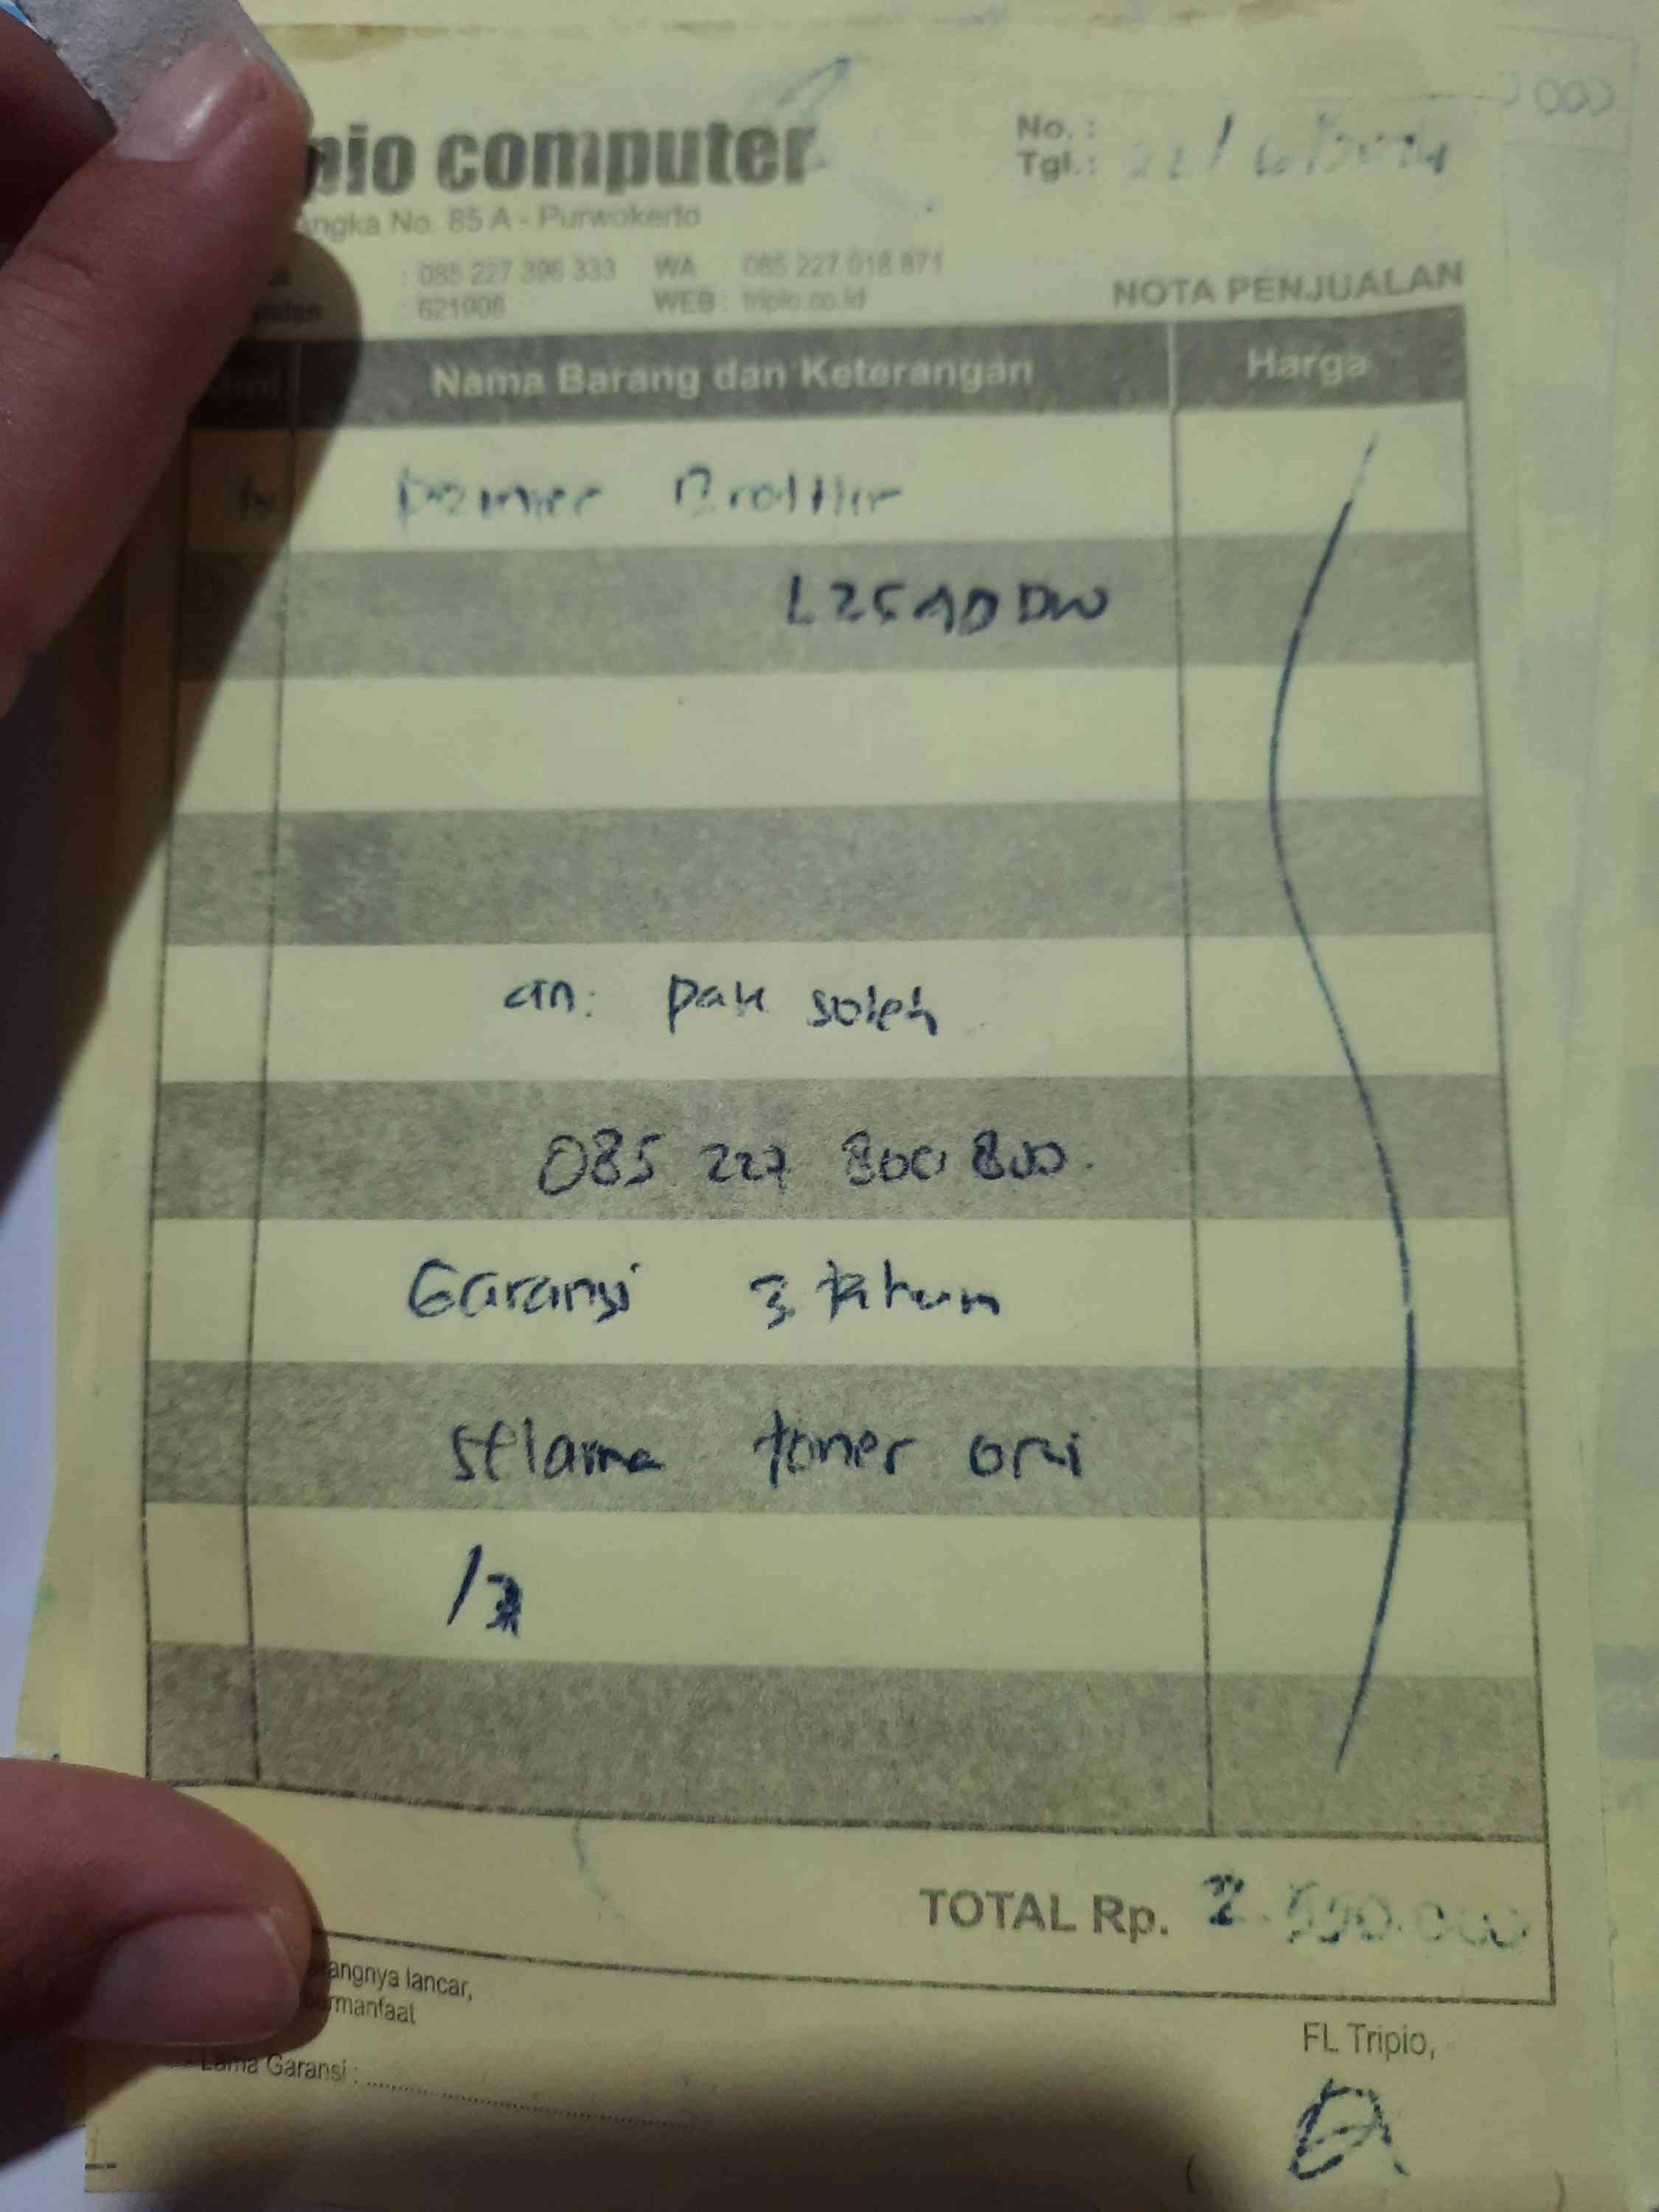 pio computer
No. :
Tgl.: 22/6/2024
angka No. 85 A - Purwokerto
: 085 227 396 333 WA 085 227 018 871
: 621906 WEB : tripio.co.id
NOTA PENJUALAN
Nama Barang dan Keterangan Harga
Brother
L2540DW
an: pak soleh
085 227 800 800.
Garansi 3 tahun
selama toner ori
TOTAL Rp. 2.550.000
angnya lancar,
bermanfaat
Lama Garansi :
FL Tripio,